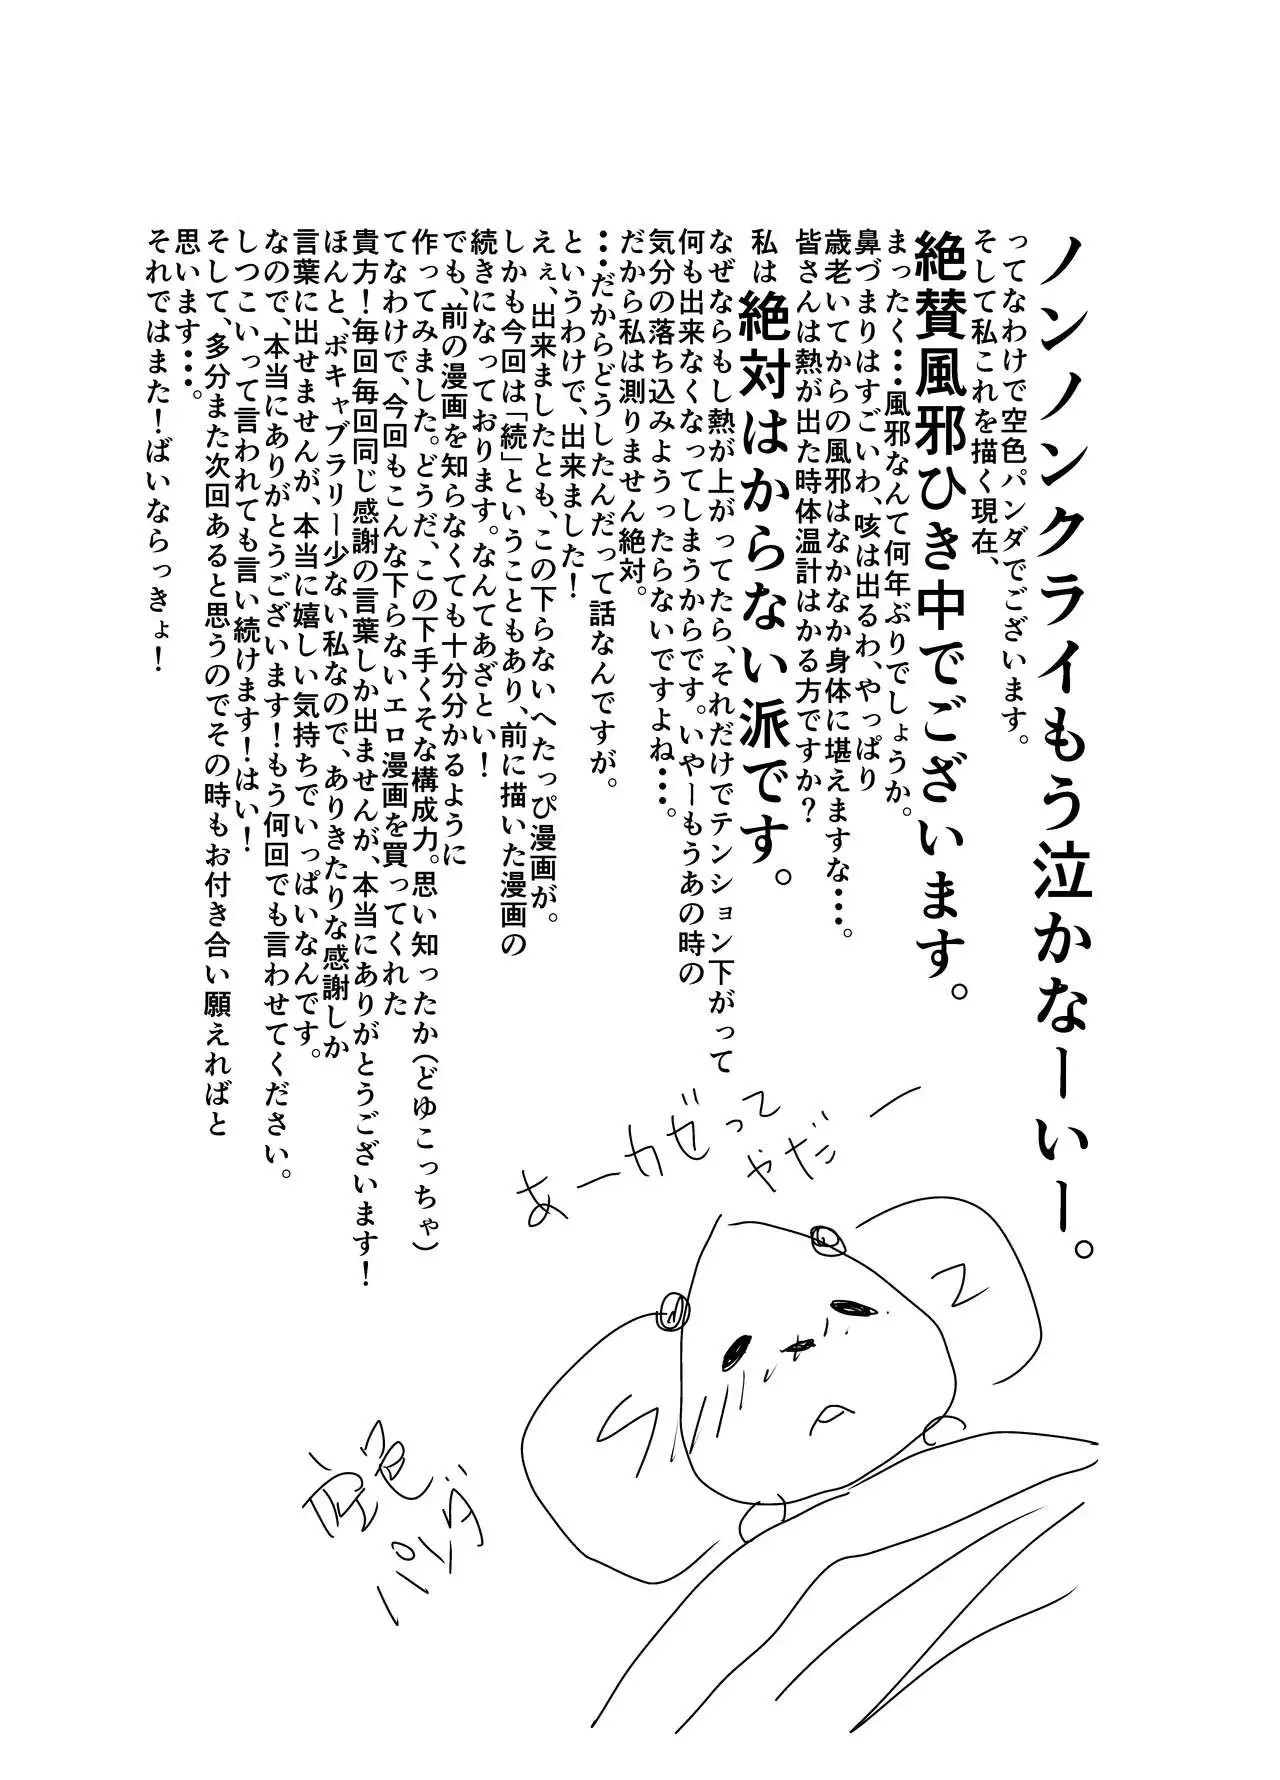 ノンノンクライもう泣かなーいー。
ってなわけで空色パンダでございます。
そして私これを描く現在、
絶賛風邪ひき中でございます。
まったく・・・風邪なんて何年ぶりでしょうか。
鼻づまりはすごいわ、咳は出るわ、やっぱり
歳老いてからの風邪はなかなか身体に堪えますな・・・。
皆さんは熱が出た時体温計はかる方ですか?
私は絶対はからない派です。
なぜならもし熱が上がってたら、それだけでテンション下がって
何も出来なくなってしまうからです。いやーもうあの時の
気分の落ち込みようったらないですよね・・・。
だから私は測りません絶対。
・・・だからどうしたんだって話なんですが。
というわけで、出来ました!
えぇ、出来ましたとも、この下らないへたっぴ漫画が。
しかも今回は「続」ということもあり、前に描いた漫画の
続きになっております。なんてあざとい!
でも、前の漫画を知らなくても十分分かるように
作ってみました。どうだ、この下手くそな構成力。思い知ったか(どゆこっちゃ)
てなわけで、今回もこんな下らないエロ漫画を買ってくれた
貴方!毎回毎回同じ感謝の言葉しか出ませんが、本当にありがとうございます!
ほんと、ボキャブラリー少ない私なので、ありきたりな感謝しか
言葉に出せませんが、本当に嬉しい気持ちでいっぱいなんです。
なので、本当にありがとうございます!もう何回でも言わせてください。
しつこいって言われても言い続けます!はい!
そして、多分また次回あると思うのでその時もお付き合い願えればと
思います・・・。
それではまた!ばいならっきょ!
あーかぜって
やだー
空色
パンダ